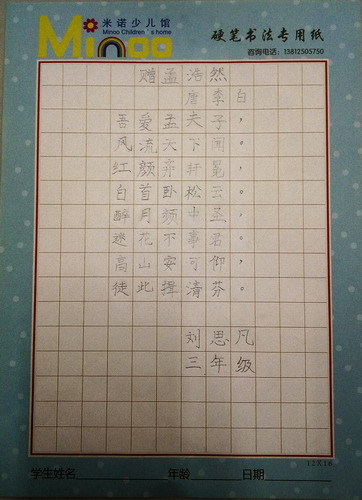 米诺少儿馆
Minoo Children's home
Minoo
硬笔书法专用纸
咨询电话：13812505750
赠孟浩然
唐李白
吾爱孟夫子，
风流天下闻。
红颜弃轩冕，
白首卧松云。
醉月频中圣，
迷花不事君。
高山安可仰，
徒此揖清芬。
刘思凡
三年级
12X16
学生姓名 年龄 日期